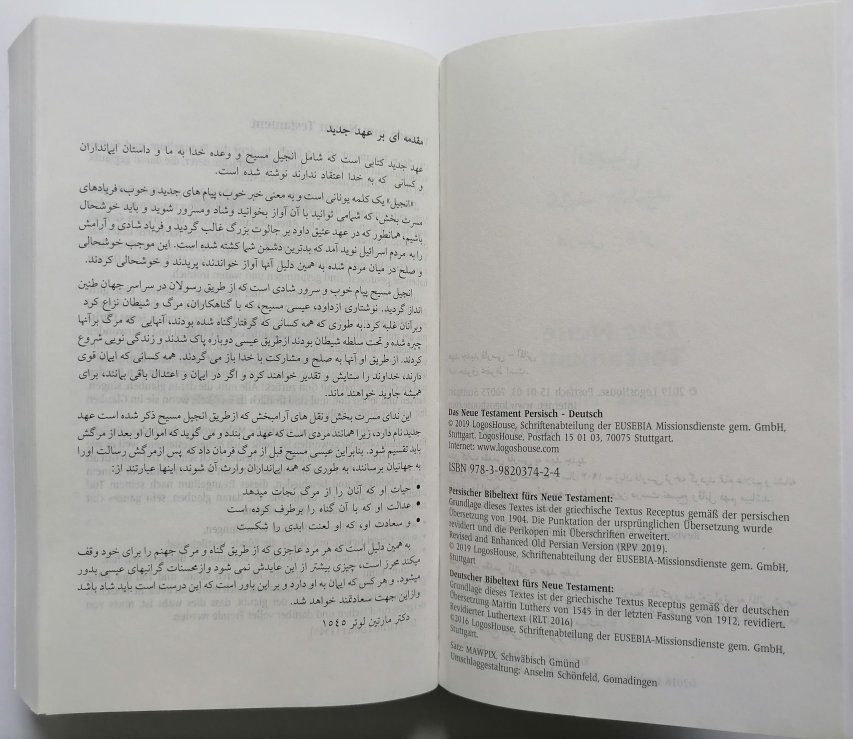 مقدمه ای بر عهد جدید
عهد جدید کتابی است که شامل انجیل مسیح و وعده خدا به ما و داستان ایمانداران
و کسانی که به خدا اعتقاد ندارند نوشته شده است.
«انجیل» یک کلمه یونانی است و به معنی خبر خوب، پیام های جدید و خوب، فریادهای
مسرت بخش، که شمامی توانید با آن آواز بخوانید وشاد ومسرور شوید و باید خوشحال
باشیم. همانطور که در عهد عتیق داود بر جالوت بزرگ غالب گردید و فریاد شادی و آرامش
را به مردم اسرائیل نوید آمد که بدترین دشمن شما کشته شده است. این موجب خوشحالی
و صلح در میان مردم شده به همین دلیل آنها آواز خواندند، پریدند و خوشحالی کردند.
انجیل مسیح پیام خوب و سرور شادی است که از طریق رسولان در سراسر جهان طنین
انداز گردید. نوشتاری ازداود، عیسی مسیح، که با گناهکاران، مرگ و شیطان نزاع کرد
وبرآنان غلبه کرد.به طوری که همه کسانی که گرفتارگناه شده بودند، آنهایی که مرگ برآنها
چیره شده و تحت سلطه شیطان بودند ازطریق عیسی دوباره پاک شدند و زندگی نویی شروع
کردند. از طریق او آنها به صلح و مشارکت با خدا باز می گردند. همه کسانی که ایمان قوی
دارند، خداوند را ستایش و تقدیر خواهند کرد و اگر در ایمان و اعتدال باقی بمانند، برای
همیشه جاوید خواهند ماند.
این ندای مسرت بخش ونقل های آرامبخش که ازطریق انجیل مسیح ذکر شده است عهد
جدید نام دارد، زیرا همانند مردی است که عهد می بندد و می گوید که اموال او بعد از مرگش
باید تقسیم شود. بنابراین عیسی مسیح قبل از مرگ فرمان داد که پس ازمرگش رسالت اورا
به جهانیان برسانند، به طوری که همه ایمانداران وارث آن شوند، اینها عبارتند از:
• حیات او که آنان را از مرگ نجات میدهد
• عدالت او که با آن گناه را برطرف کرده است
• و سعادت او، که او لعنت ابدی را شکست
به همین دلیل است که هر مرد عاجزی که از طریق گناه و مرگ جهنم را برای خود وقف
میکند محرز است، چیزی بیشتر از این عایدش نمی شود وازمحسنات گرانبهای عیسی بدور
میشود. و هر کس که ایمان به او دارد و بر این باور است که این درست است باید شاد باشد
وازاین جهت سعادتمند خواهد شد.
دکتر مارتین لوتر ۱۵۴۵
Das Neue Testament Persisch - Deutsch
© 2019 LogosHouse, Schriftenabteilung der EUSEBIA Missionsdienste gem. GmbH,
Stuttgart. LogosHouse, Postfach 15 01 03, 70075 Stuttgart.
Internet: www.logoshouse.com
ISBN 978-3-9820374-2-4
Persischer Bibeltext fürs Neue Testament:
Grundlage dieses Textes ist der griechische Textus Receptus gemäß der persischen
Übersetzung von 1904. Die Punktation der ursprünglichen Übersetzung wurde
revidiert und die Perikopen mit Überschriften erweitert.
Revised and Enhanced Old Persian Version (RPV 2019).
© 2019 LogosHouse, Schriftenabteilung der EUSEBIA-Missionsdienste gem. GmbH,
Stuttgart
Deutscher Bibeltext fürs Neue Testament:
Grundlage dieses Textes ist der griechische Textus Receptus gemäß der deutschen
Übersetzung Martin Luthers von 1545 in der letzten Fassung von 1912, revidiert.
Revidierter Luthertext (RLT 2016)
©2016 LogosHouse, Schriftenabteilung der EUSEBIA-Missionsdienste gem. GmbH,
Stuttgart.
Satz: MAWPIX, Schwäbisch Gmünd
Umschlaggestaltung: Anselm Schönfeld, Gomadingen